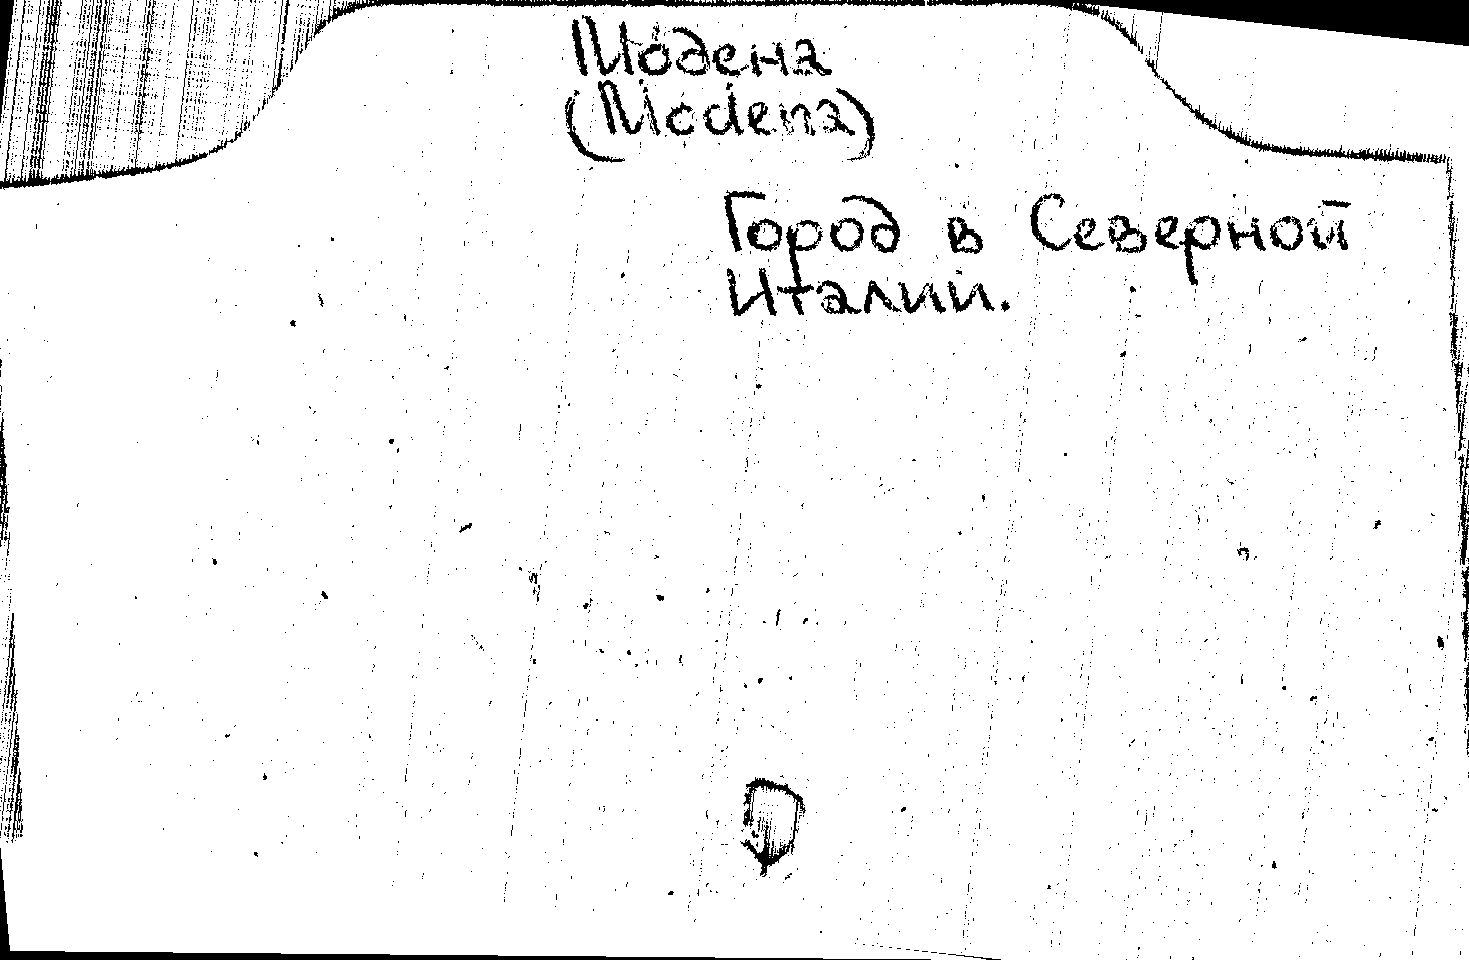 Мо́дена
(Modena)
Город в Северной
Италии.